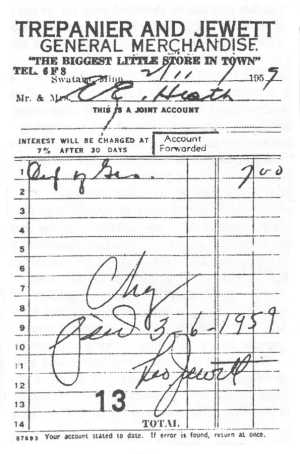 TREPANIER AND JEWETT
GENERAL MERCHANDISE.
"THE BIGGEST LITTLE STORE IN TOWN"
TEL. 6 F 8
Swatara, Minn 2/11 1959
Mr. & Mrs. E. E. Heath
THIS IS A JOINT ACCOUNT
INTEREST WILL BE CHARGED AT
7% AFTER 30 DAYS
Account
Forwarded
1 of Gas. 7 00
2
3
4
5
6
7 Chg
8
9 3-6-1959
10
11 Leo Jewett
12
13
13
14 TOTAL
87893 Your account stated to date. If error is found, return at once.